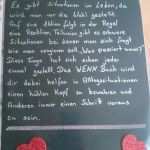 Es gibt Situationen im Leben, da
wird man vor die Wahl gestellt.
Auf eine Aktion folgt in der Regel
eine Reaktion. Teilweise gibt es schwere
Situationen bei denen man sich fragt
wie man reagieren soll. „Was passiert wenn?"
Diese Frage hat sich schon jeder
einmal gestellt. Das WENN Buch wird
dir dabei helfen in Alltagssituationen
einen kühlen Kopf zu bewahren und
Anderen immer einen Schritt voraus
zu sein.